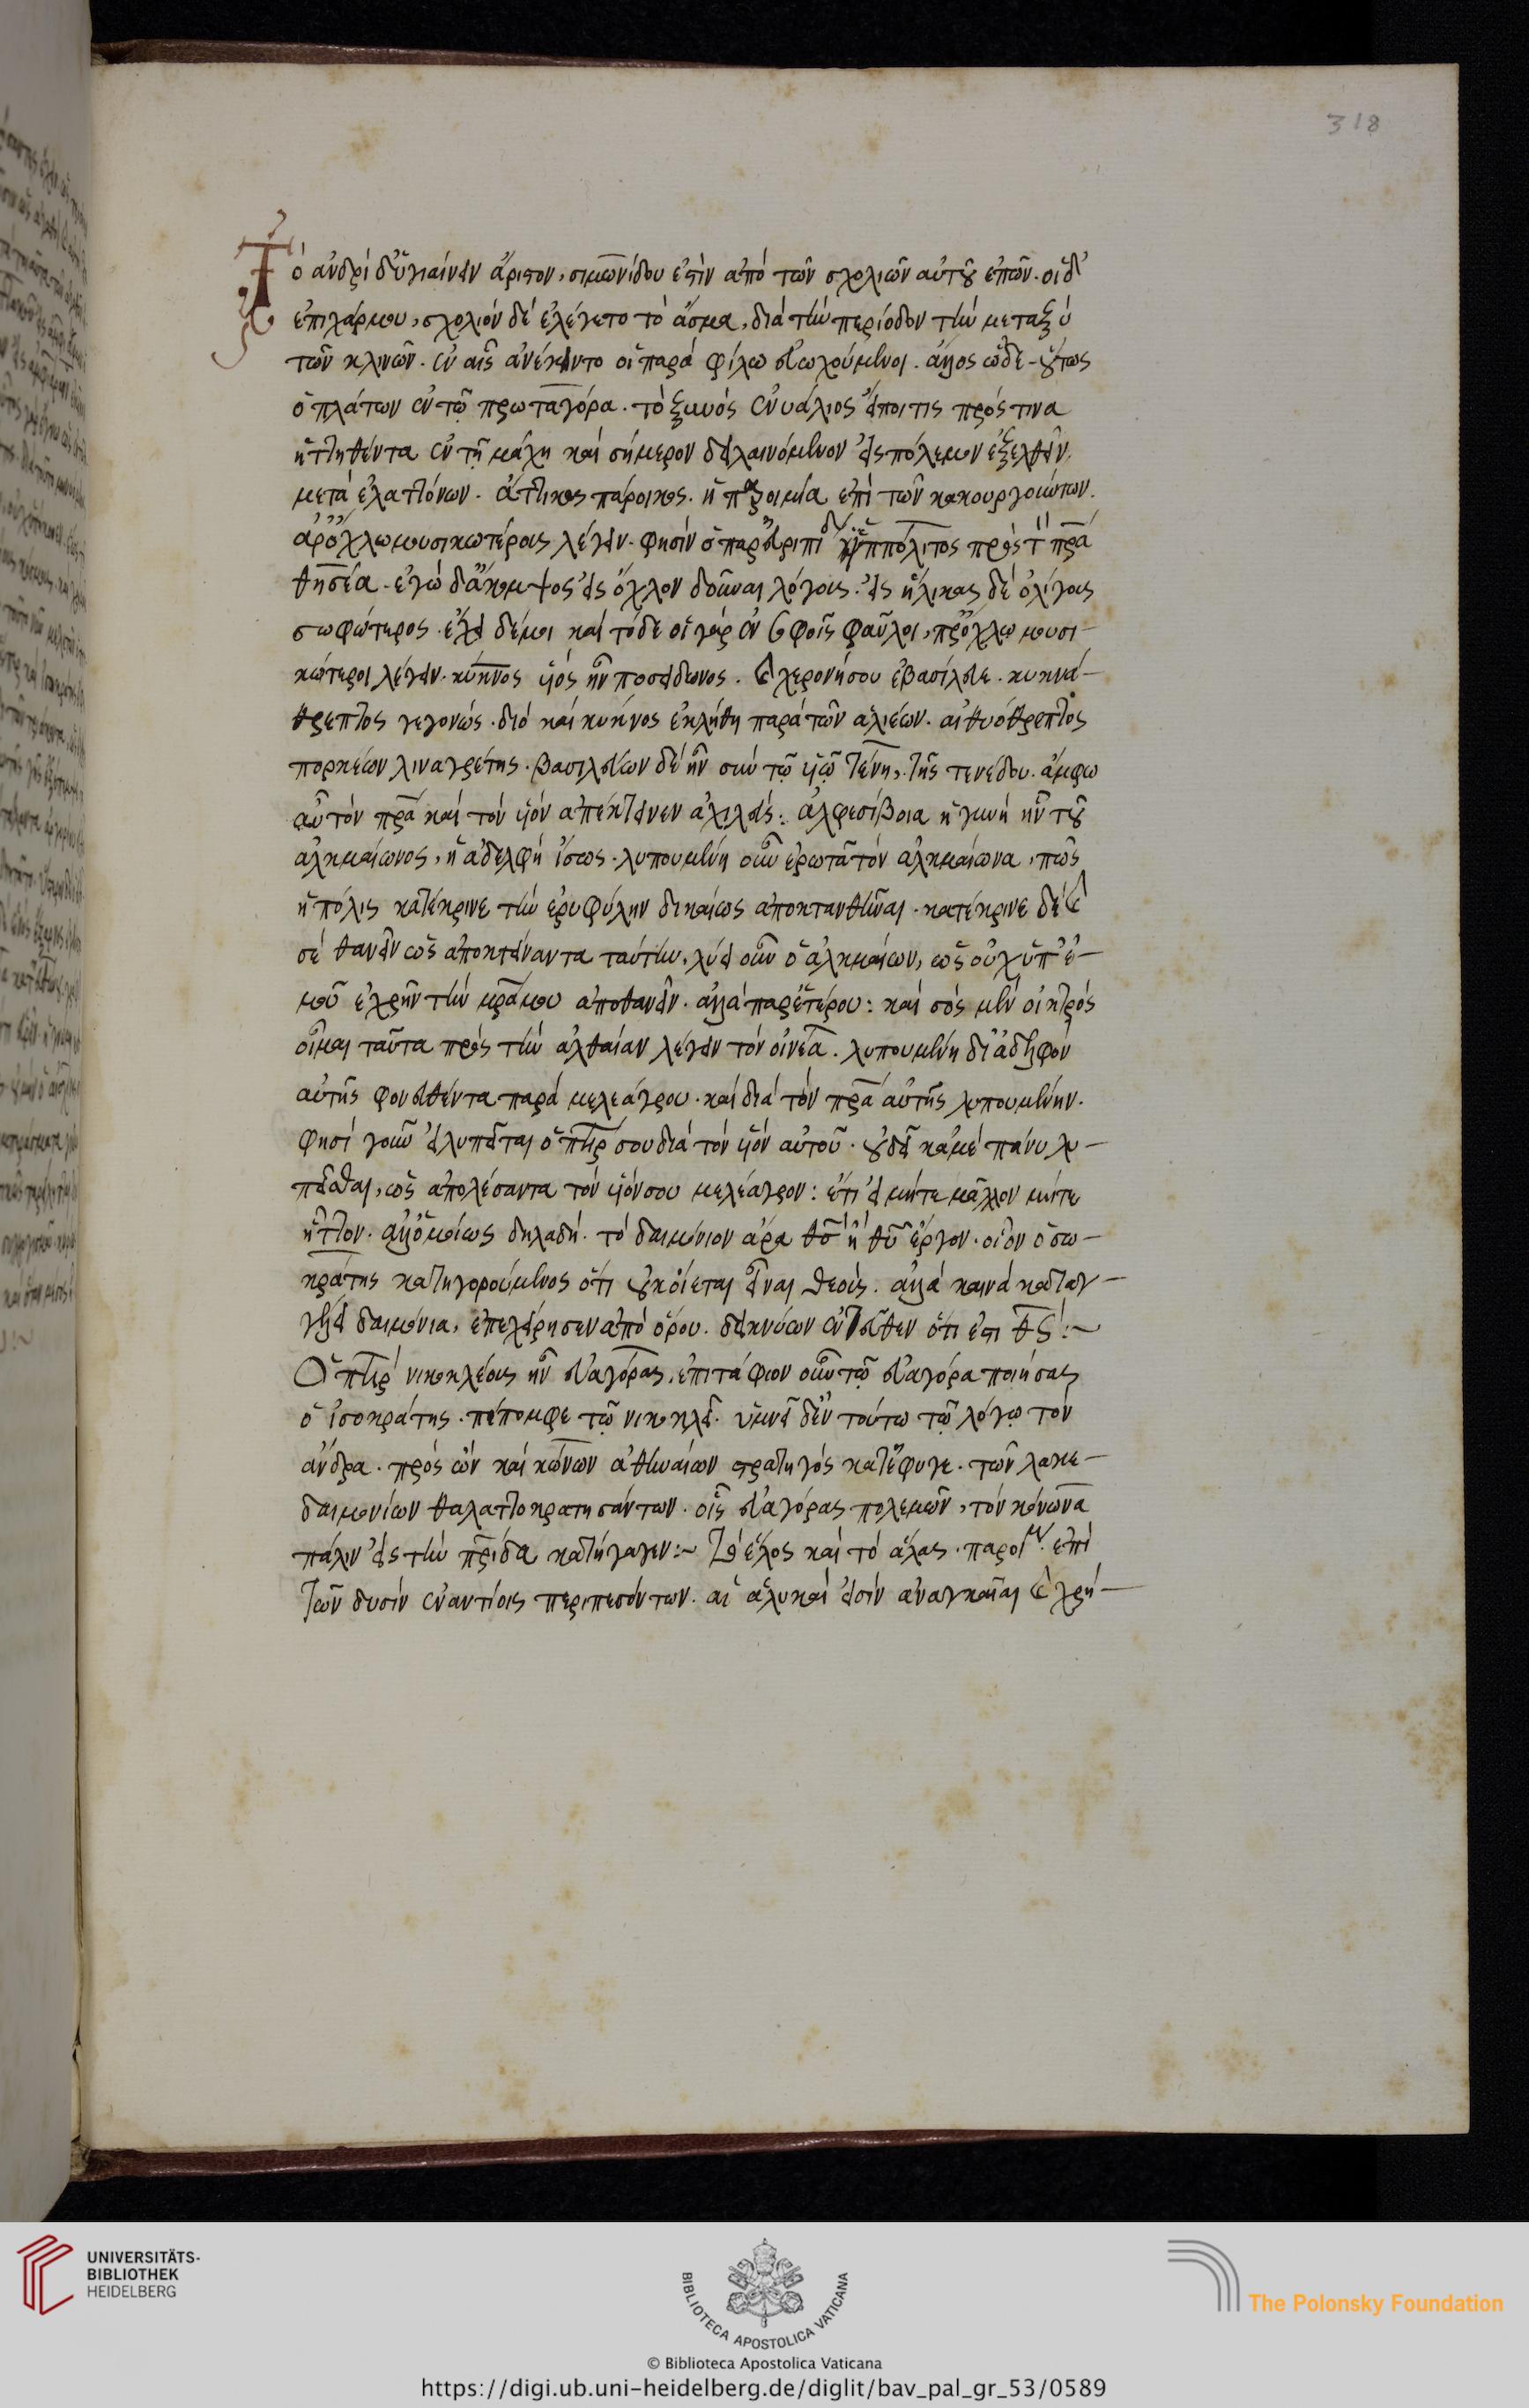 318
Τὸ ἀνδρὶ δ' ὑγιαίνειν ἄριστον, σιμωνίδου ἐστὶν ἀπὸ τῶν σχολιῶν αὐτοῦ ἐπῶν. οἱ δ'
ἐπιχάρμου, σχολιὸν δὲ ἐλέγετο τὸ ἆσμα, διὰ τὴν περίοδον τὴν μεταξὺ
τῶν κλινῶν. ἐν αἷς ἀνέκειντο οἱ παρὰ φίλω εὐωχούμενοι. ἄλλος ὧδε - οὕτως
ὁ πλάτων ἐν τῷ πρωταγόρα. τὸ ξυνὸς ἐνυάλιος εἴποι τις πρός τινα
ἡττηθέντα ἐν τῇ μάχη καὶ σήμερον δειλαινόμενον εἰς πόλεμον ἐξελθεῖν.
μετὰ ἐλαττόνων. ἀττικὸς πάροικος. ἡ παροιμία ἐπὶ τῶν κακουργούντων.
παρ' ὄχλω μουσικωτέροις λέγειν. φησὶν ὁ παρ' εὐριπίδου ἱππόλιτος πρὸς τ πρα
θησέα. ἐγὼ δ' ἄκομψος εἰς ὄχλον δοῦναι λόγους. εἰς ἥλικας δὲ ὀλίγους
σωφώτερος. ἔχει δέ μοι καὶ τόδε οἱ γὰρ ἐν σοφοῖς φαῦλοι, πρ' ὄχλω μουσι-
κώτεροι λέγειν. κύκνος υἱὸς ἦν ποσειδωνος. καὶ χερονήσου ἐβασίλευε. κυκνό-
θρεπτος γεγονώς. διὸ καὶ κυκνος ἐκλήθη παρὰ τῶν ἁλιέων. αἰθυόθρεπτος
πορκέων λιναγρέτης. βασιλεύων δὲ ἦν σὺν τῷ υἱῷ τένη, τῆς τενέδου. ἄμφω
αὐτὸν πρα καὶ τὸν υἱὸν ἀπέκτεινεν ἀχιλεύς: ἀλφεσίβοια ἡ γυνὴ ἦν τοῦ
ἀλκμαίωνος, ἡ ἀδελφὴ ἴσως. λυπουμένη οὖν ἐρωτᾶ τὸν ἀλκμαίωνα, πῶς
ἡ πόλις κατέκρινε τὴν ἐρυφύλην δικαίως ἀποκτανθῆναι. κατέκρινε δὲ καὶ
σὲ θανεῖν ὡς ἀποκτείναντα ταύτην. λύει οὖν ὁ ἀλκμαίων, ὡς οὐχ ὑπ' ἐ-
μοῦ ἐχρῆν τὴν μρα μου ἀποθανεῖν. ἀλλὰ παρ' ἑτέρου: καὶ σὸς μὲν οἰκτρὸς
οἶμαι ταῦτα πρὸς τὴν ἀλθαίαν λέγειν τὸν οἰνέα. λυπουμένη δι' ἀδελφὸν
αὐτῆς φονευθέντα παρὰ μελεάγρου. καὶ διὰ τὸν πρα αὐτῆς λυπουμένην.
φησὶ γοῦν εἰ λυπεῖται ὁ πηρ σου διὰ τὸν υἱὸν αὐτοῦ. οὐ δεῖ κἀμὲ πάνυ λυ-
πεῖσθαι, ὡς ἀπολέσαντα τὸν υἱόν σου μελέαγρον: ἔτι εἰ μήτε μᾶλλον μήτε
ἧττον. ἀλλ' ὁμοίως δηλαδή. τὸ δαιμόνιον ἆρα θς ἢ θυ ἔργον. οἷον ὁ σω-
κράτης κατηγορούμενος ὅτι οὐκ οἴεται εἶναι θεούς. ἀλλὰ καινὰ καταγ-
γέλλει δαιμόνια, ἐπεχείρησεν ἀπὸ ὅρου. δεικνύων ἐντεῦθεν ὅτι ἐστι θς:~
Ὁ πηρ νικοκλέους ἦν εὐαγόρας, ἐπιτάφιον οὖν τῷ εὐαγόρα ποιήσας
ὁ ἰσοκράτης. πέπομφε τῷ νικοκλεῖ. ὑμνεῖ δ' ἐν τούτω τῷ λόγῳ τὸν
ἄνδρα. πρὸς ὃν καὶ κώνων ἀθηναίων στρατηγὸς κατέφυγε. τῶν λακε-
δαιμονίων θαλαττοκρατησάντων. οἷς εὐαγόρας πολεμῶν, τὸν κόνωνα
πάλιν εἰς τὴν πρίδα κατήγαγεν:~ Τὸ ἕλος καὶ τὸ ἅλας. παροιμ. ἐπὶ
τῶν δυσὶν ἐναντίοις περιπεσόντων. αἱ ἁλυκαὶ εἰσὶν ἀναγκαῖαι καὶ χρή-
UNIVERSITÄTS-
BIBLIOTHEK
HEIDELBERG
BIBLIOTECA APOSTOLICA VATICANA
The Polonsky Foundation
© Biblioteca Apostolica Vaticana
https://digi.ub.uni-heidelberg.de/diglit/bav_pal_gr_53/0589